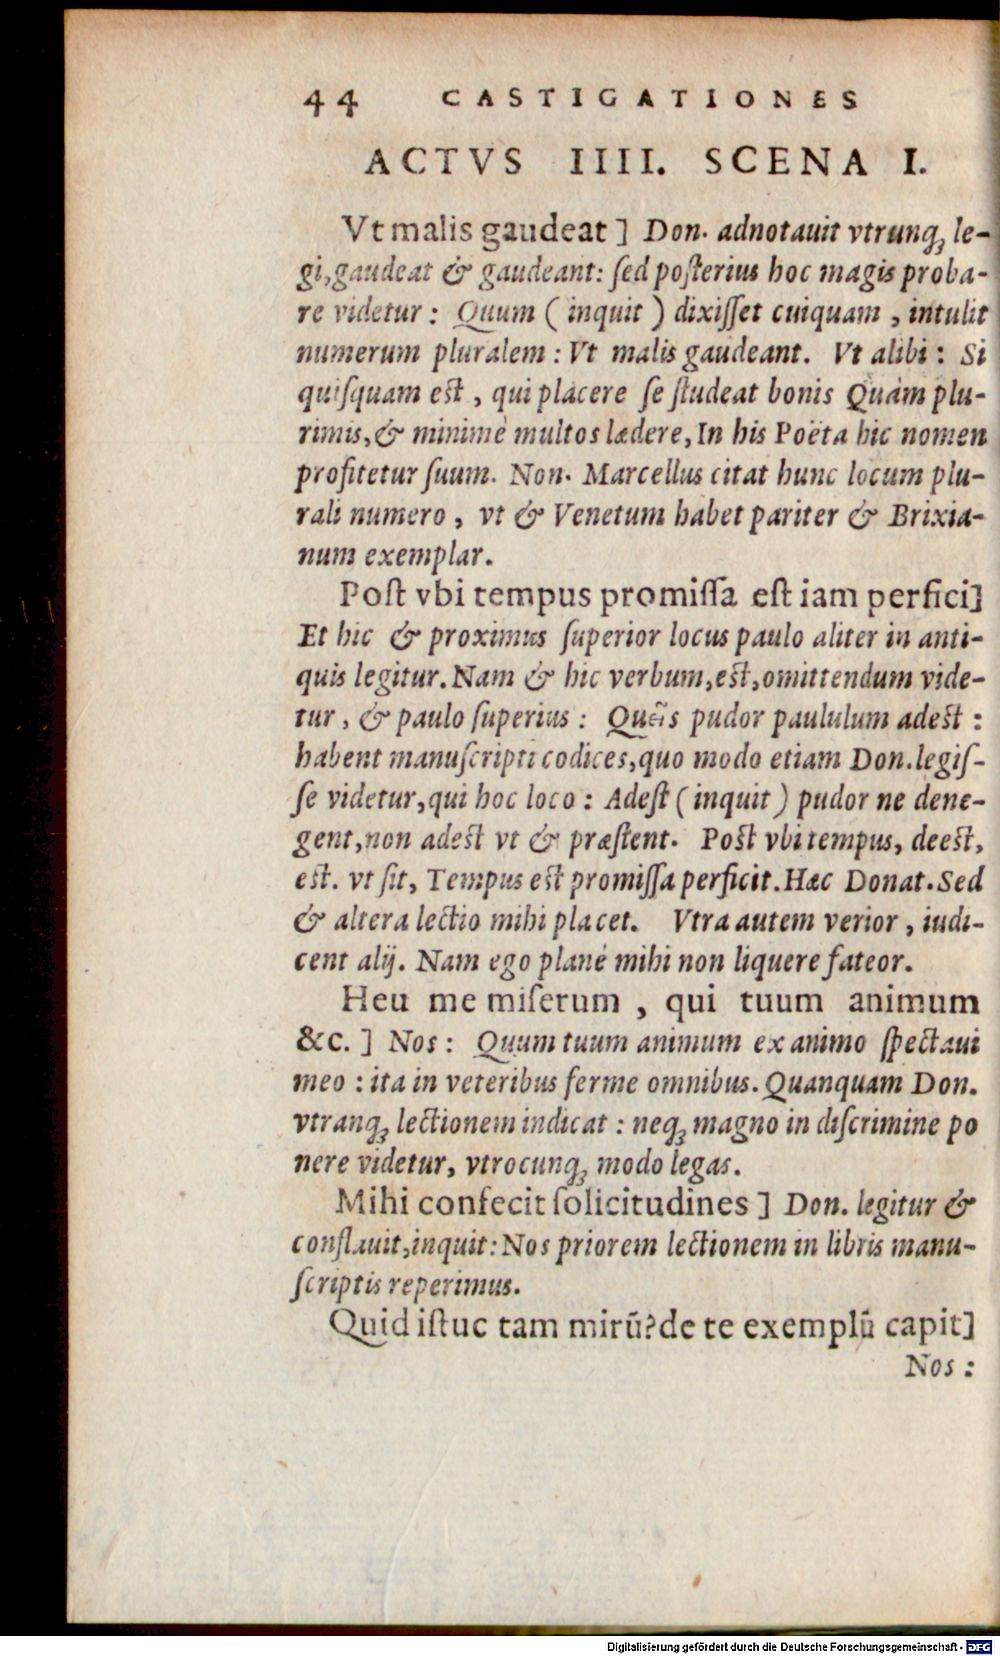 44 CASTIGATIONES
ACTVS IIII. SCENA I.
Vt malis gaudeat ] Don. adnotauit vtrunq; le-
gi, gaudeat & gaudeant: ſed poſterius hoc magis proba-
re videtur : Quum ( inquit ) dixiſſet cuiquam , intulit
numerum pluralem : Vt malis gaudeant. Vt alibi : Si
quiſquam eſt , qui placere ſe ſtudeat bonis Quàm plu-
rimis, & minimè multos lædere, In his Poëta hic nomen
profitetur ſuum. Non. Marcellus citat hunc locum plu-
rali numero , vt & Venetum habet pariter & Brixia-
num exemplar.
Poſt vbi tempus promiſſa eſt iam perfici]
Et hic & proximus ſuperior locus paulo aliter in anti-
quis legitur. Nam & hic verbum, eſt, omittendum vide-
tur , & paulo ſuperius : pudor paululum adeſt :
habent manuſcripti codices, quo modo etiam Don. legiſ-
ſe videtur, qui hoc loco : Adeſt ( inquit ) pudor ne dene-
gent, non adeſt vt & præſtent. Poſt vbi tempus, deeſt,
eſt. vt ſit, Tempus eſt promiſſa perficit. Hæc Donat. Sed
& altera lectio mihi placet. Vtra autem verior , iudi-
cent alij. Nam ego planè mihi non liquere fateor.
Heu me miſerum , qui tuum animum
&c. ] Nos : Quum tuum animum ex animo ſpectaui
meo : ita in veteribus ferme omnibus. Quanquam Don.
vtranq; lectionem indicat : neq; magno in diſcrimine po
nere videtur, vtrocunq; modo legas.
Mihi confecit ſolicitudines ] Don. legitur &
conflauit, inquit: Nos priorem lectionem in libris manu-
ſcriptis reperimus.
Quid iſtuc tam mirū? de te exemplū capit]
Nos :
Digitalisierung gefördert durch die Deutsche Forschungsgemeinschaft - DFG